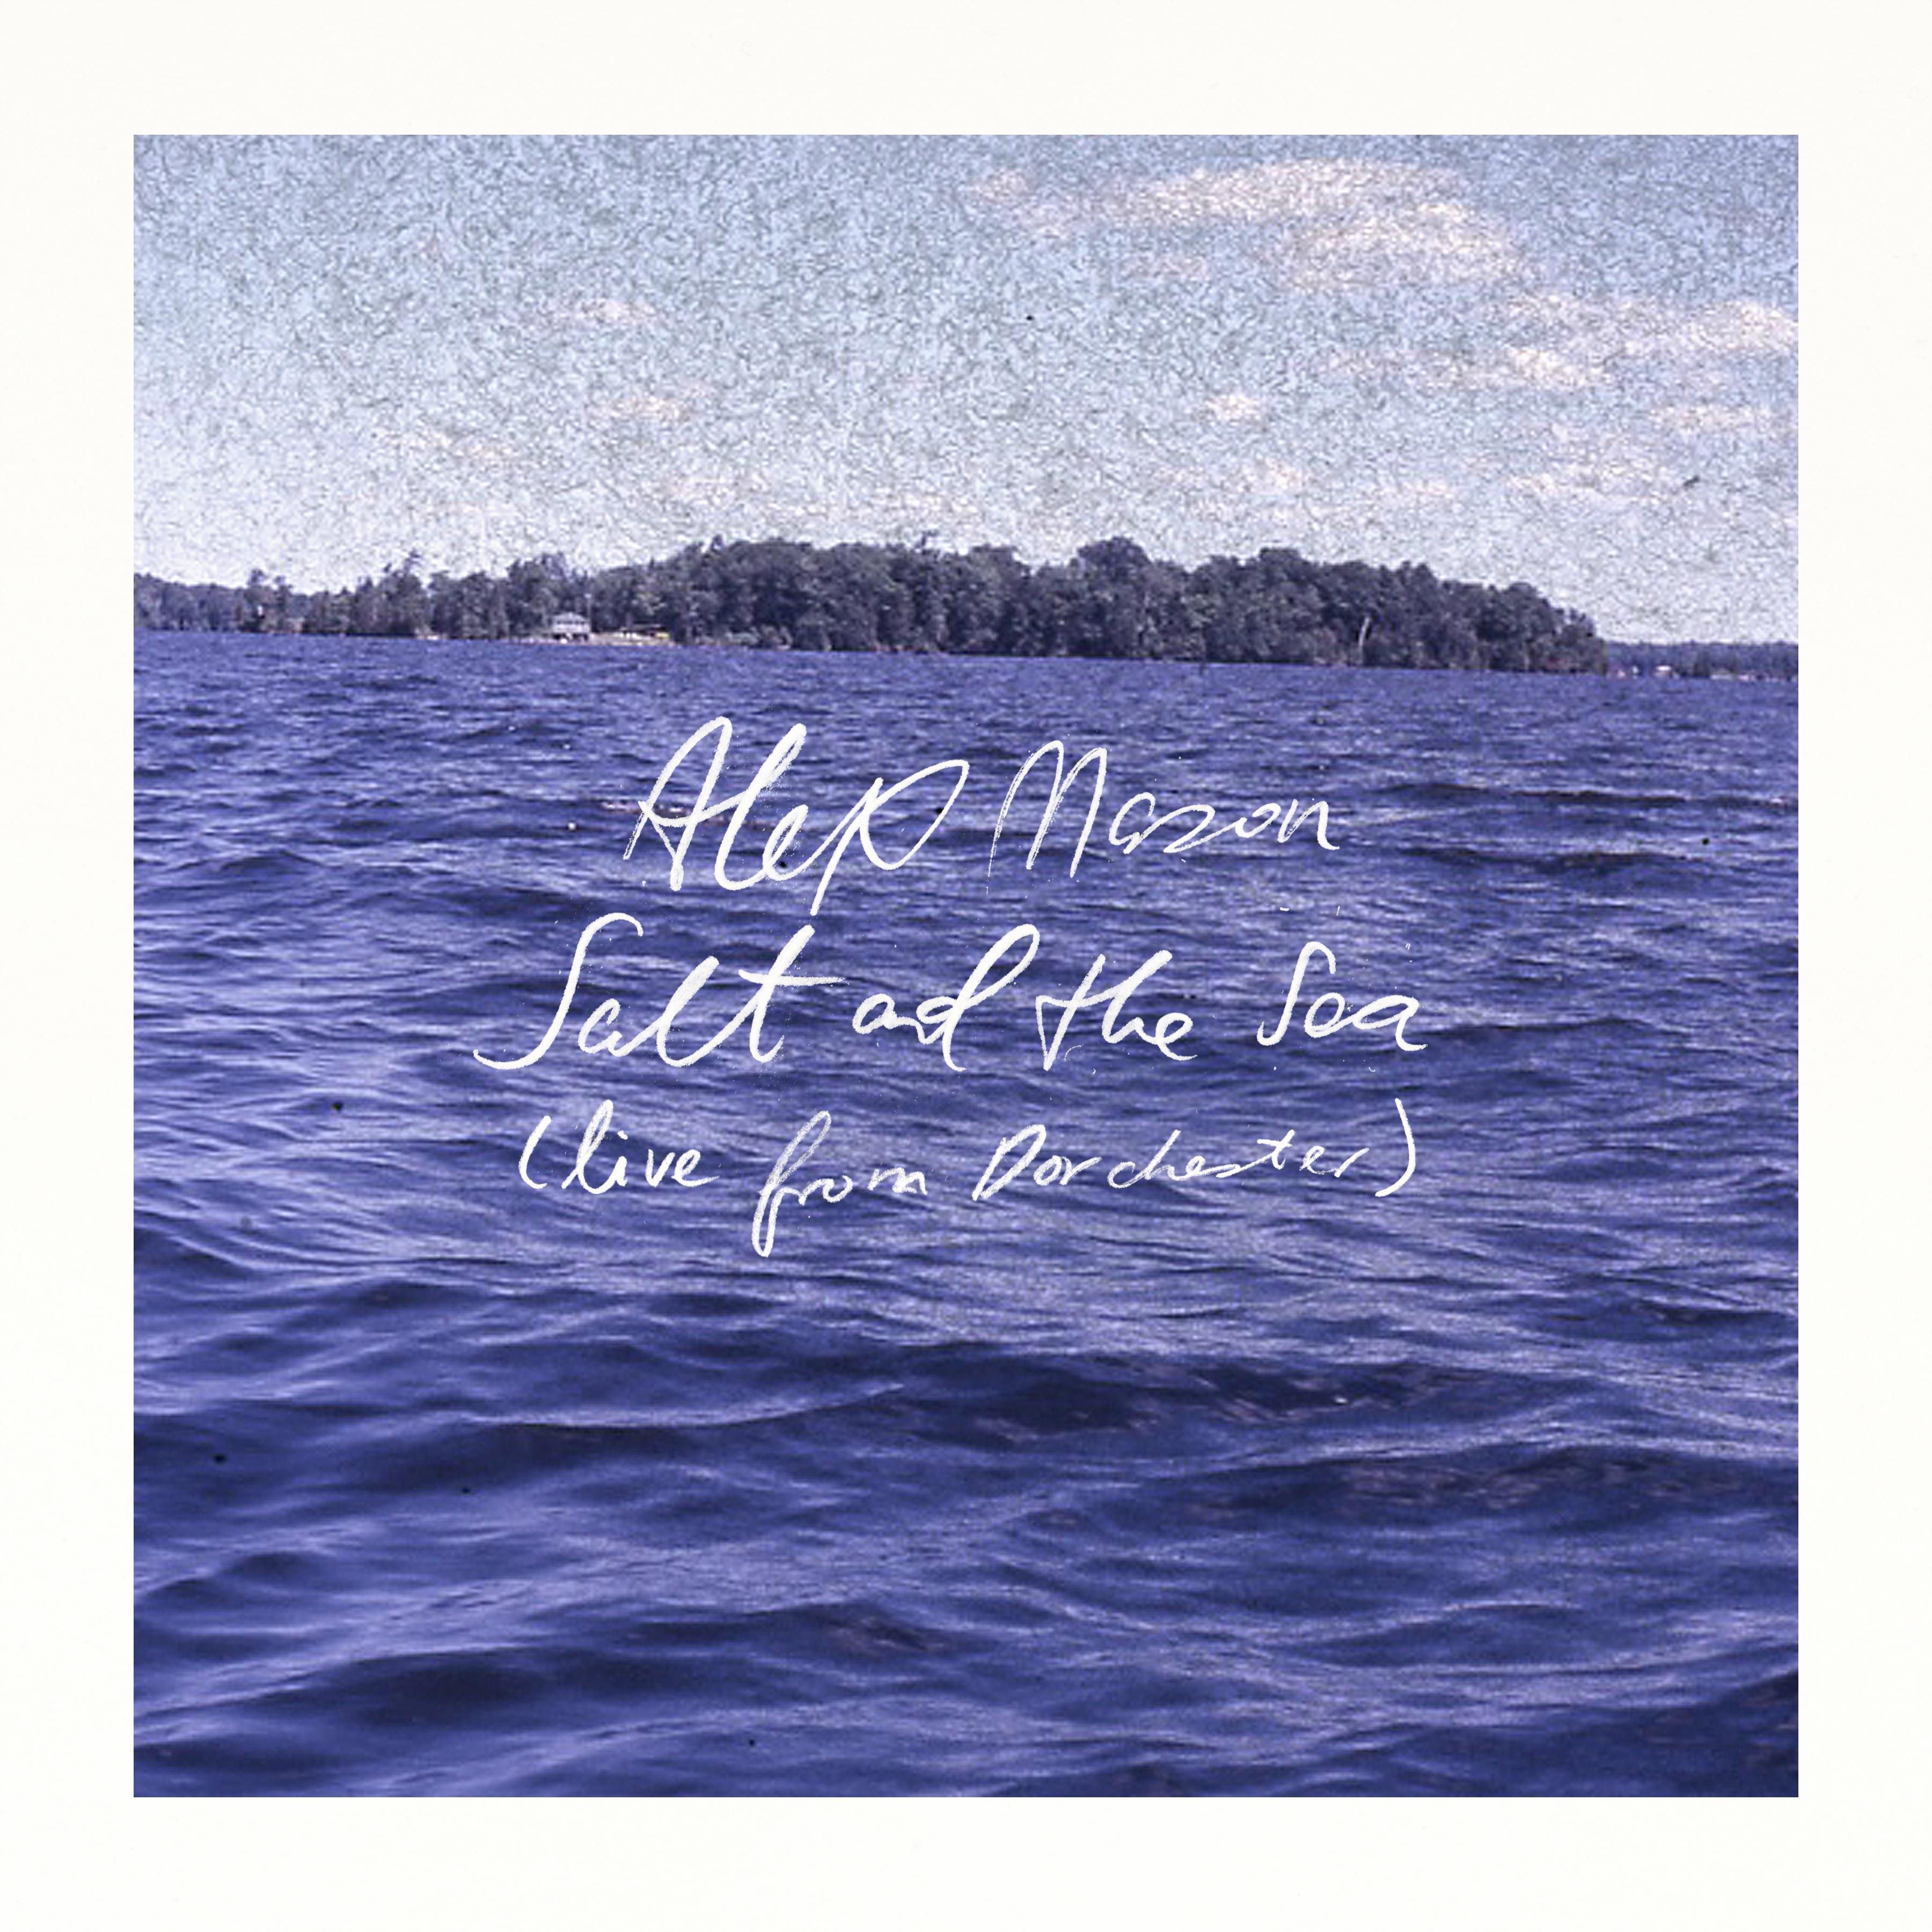 Alex Mason
Salt and the Sea
(live from Dorchester)